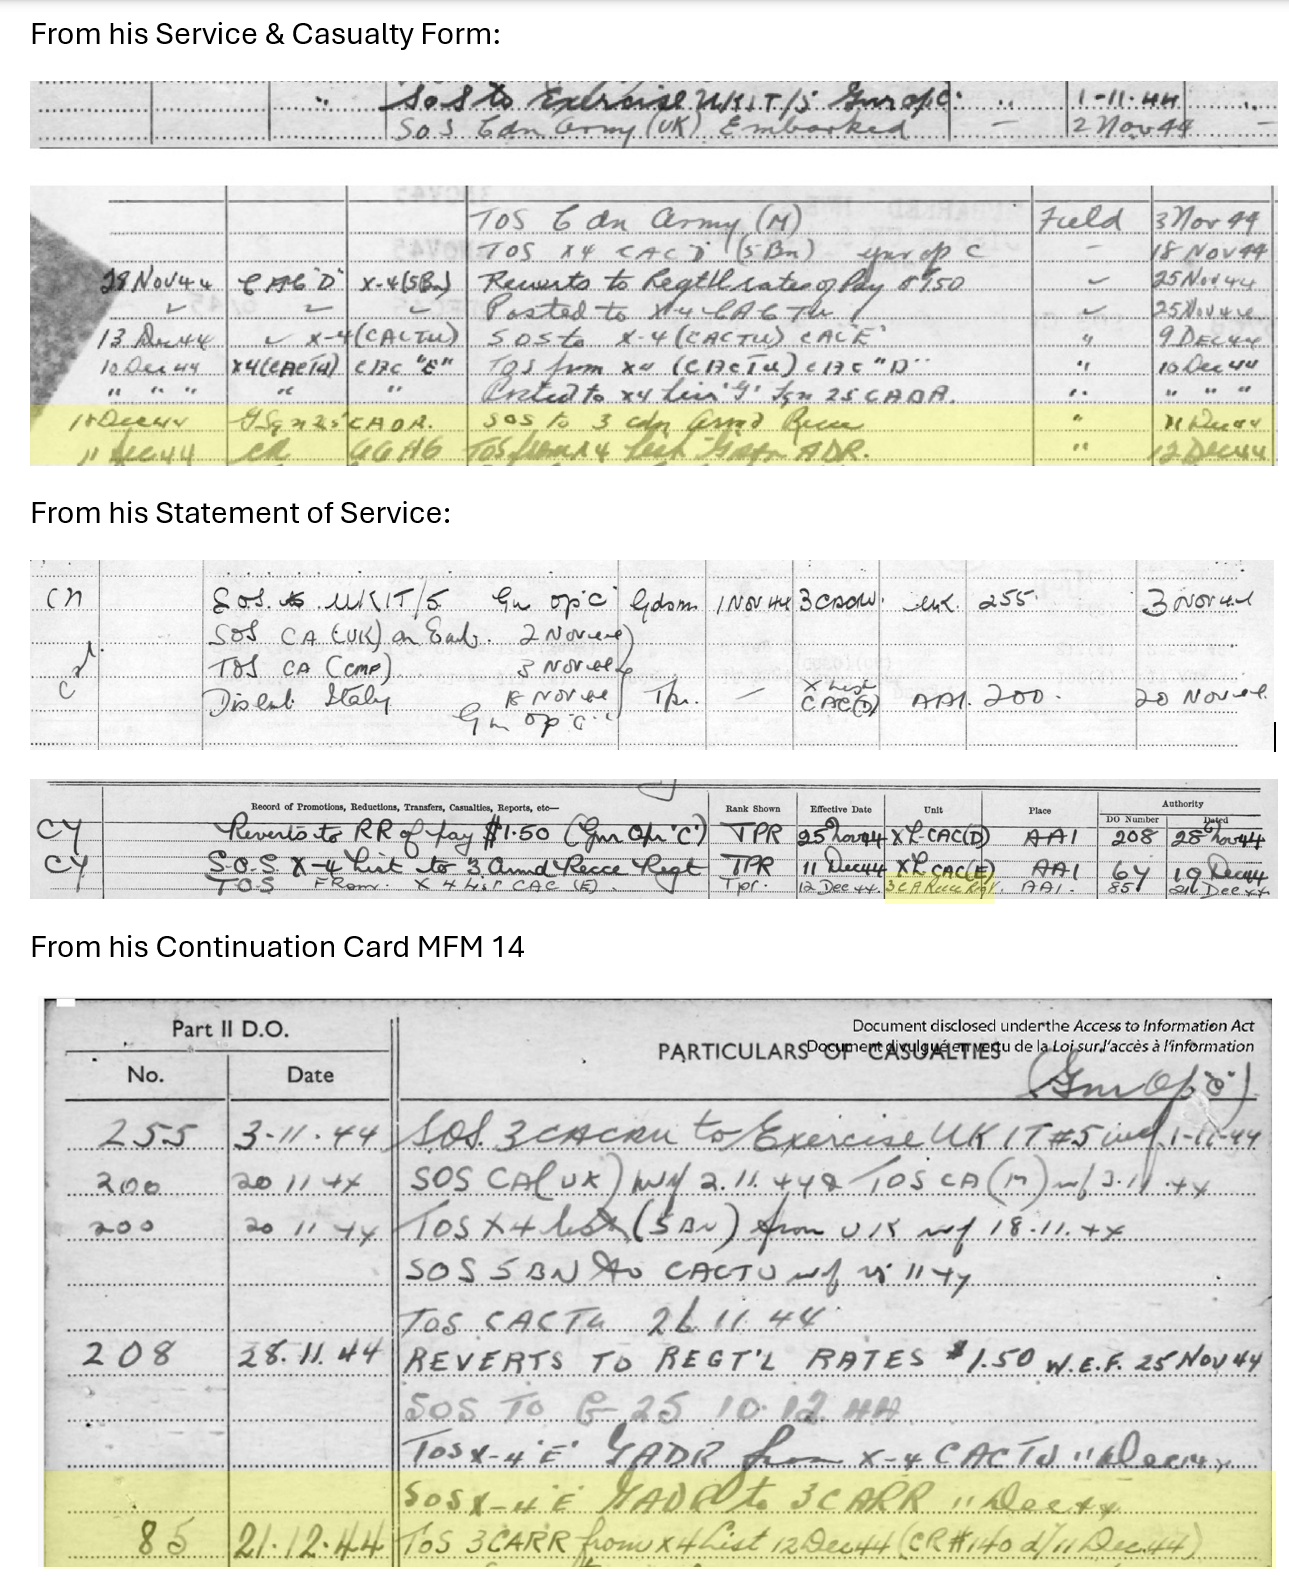 From his Service & Casualty Form:
" SoS to Exercise UKIT/5 Gnr op C. " 1-11-44 "
SoS Cdn Army (UK) Embarked — 2 Nov 44 —
TOS Cdn Army (M) Field 3 Nov 44
TOS X4 CAC D (5Bn) gnr op C - 18 Nov 44
28 Nov 44 CAC "D" X-4(5Bn) Reverts to Regt'l rates of Pay $150 25 Nov 44
Posted to X-4 CACTU 25 Nov 44
13 Dec 44 X-4(CACTU) SOS to X-4(CACTU) CAC'E' " 9 DEC 44
10 Dec 44 X4(CACTU) CAC "E" TOS from X4 (CACTU) CAC "D" " 10 Dec 44
" " " " " Posted to X4 List 'G' Sqn 25 CADR. " " " "
Dec 44 G Sqn 25 CADR. SOS to 3 cdn Armd Recce " 11 Dec 44
11 Dec 44 CR GGHG TOS from X4 List ADR. " 12 Dec 44
From his Statement of Service:
CH SoS. to UKIT/5 Gn op'c' Gdsm 1 NOV 44 3 CACRU. UK. 255. 3 Nov 44
SOS CA (UK) on Emb. 2 Nov 44
TOS CA (CMF) 3 Nov 44
Disemb. Italy 18 Nov 44 Tpr. — X List CAC(D) AAI. 200. 20 Nov 44
Gn op 'c'
Record of Promotions, Reductions, Transfers, Casualties, Reports, etc— Rank Shown Effective Date Unit Place Authority
DO Number Dated
CY Reverts to RR of pay $1.50 (Gnr Opr 'C') TPR 25 Nov 44 XL-CAC(D) AAI 208 28 Nov 44
CY S.O.S X-4 List to 3 Armd Recce Regt TPR 11 Dec 44 XL CAC(E) AAI 64 19 Dec 44
T.O.S From. X 4 List CAC (E). Tpr. 12 Dec 44. 3 C A Recce Regt. AAI. 85 21 Dec 44
From his Continuation Card MFM 14
Part II D.O.
Document disclosed under the Access to Information Act
PARTICULARS OF CASUALTIES
Document divulgué en vertu de la Loi sur l'accès à l'information
No. Date
(Gnr Op 'C')
255 3-11-44 SOS. 3 CACRU to Exercise UKIT #5 wef 1-11-44
200 20 11 44 SOS CA(UK) wef 2.11.44 & TOS CA (M) wef 3.11.44
200 20 11 44 TOS X4 list (5 BN) from UK wef 18.11.44
SOS 5 BN to CACTU wef 25 11 44
TOS CACTU 26 11 44
208 28.11.44 REVERTS TO REGT'L RATES $1.50 W.E.F. 25 NOV 44
SOS TO G-25 10.12.44
TOS X-4 'E' GADR from X-4 CACTU 11 Dec 44
SOS X-4 'E' GADR to 3 CARR 11 Dec 44
85 21.12.44 TOS 3CARR from X4 List 12 Dec 44 (CR #140 d/11 Dec 44)